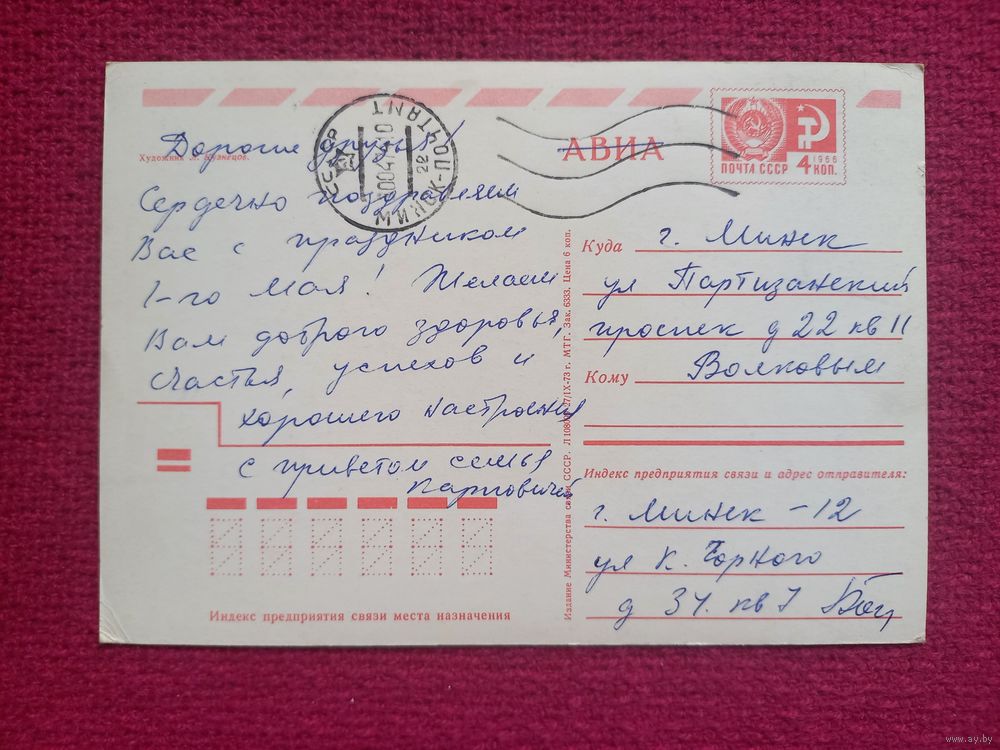 Дорогие друзья!
Художник Л. Кузнецов.
Сердечно поздравляем
Вас с праздником
1-го Мая! Желаем
Вам доброго здоровья,
счастья, успехов и
хорошего настроения
с приветом семья
Индекс предприятия связи места назначения
СССР
МИНСК-ПОЧТАМТ
АВИА
ПОЧТА СССР
4 КОП.
1966
Издание Министерства связи СССР. 27/IX-73 г. МТГ. Зак. 6333. Цена 6 коп.
Куда г. Минск
ул Партизанский
проспек д 22 кв 11
Кому Волковым
Индекс предприятия связи и адрес отправителя:
г. Минск - 12
ул К. Чорного
д 31. кв 7
www.ay.by